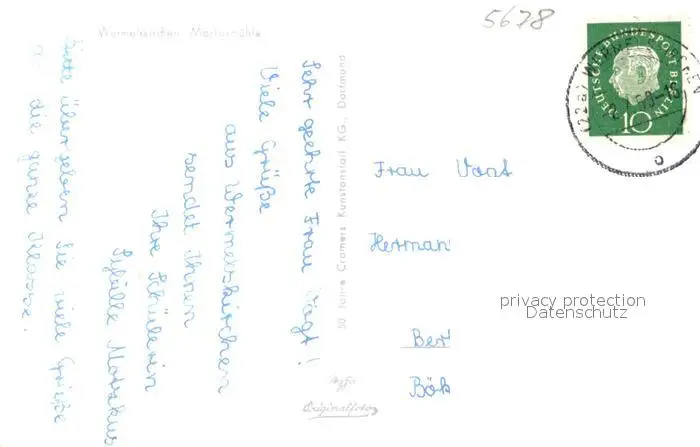 5678
Wermelskirchen Markusmühle
DEUTSCHE BUNDESPOST BERLIN
10
(22a) WERMELSKIRCHEN
50 Jahre Cramers Kunstanstalt KG., Dortmund
Sehr geehrte Frau Vogt!
Viele Grüße
aus Wermelskirchen
sendet Ihnen
Ihre Schülerin
Sybille
Bitte übergeben Sie viele Grüße
an die ganze Klasse.
Frau Vont
Herman
privacy protection
Datenschutz
Ber
Bök
Originalfoto